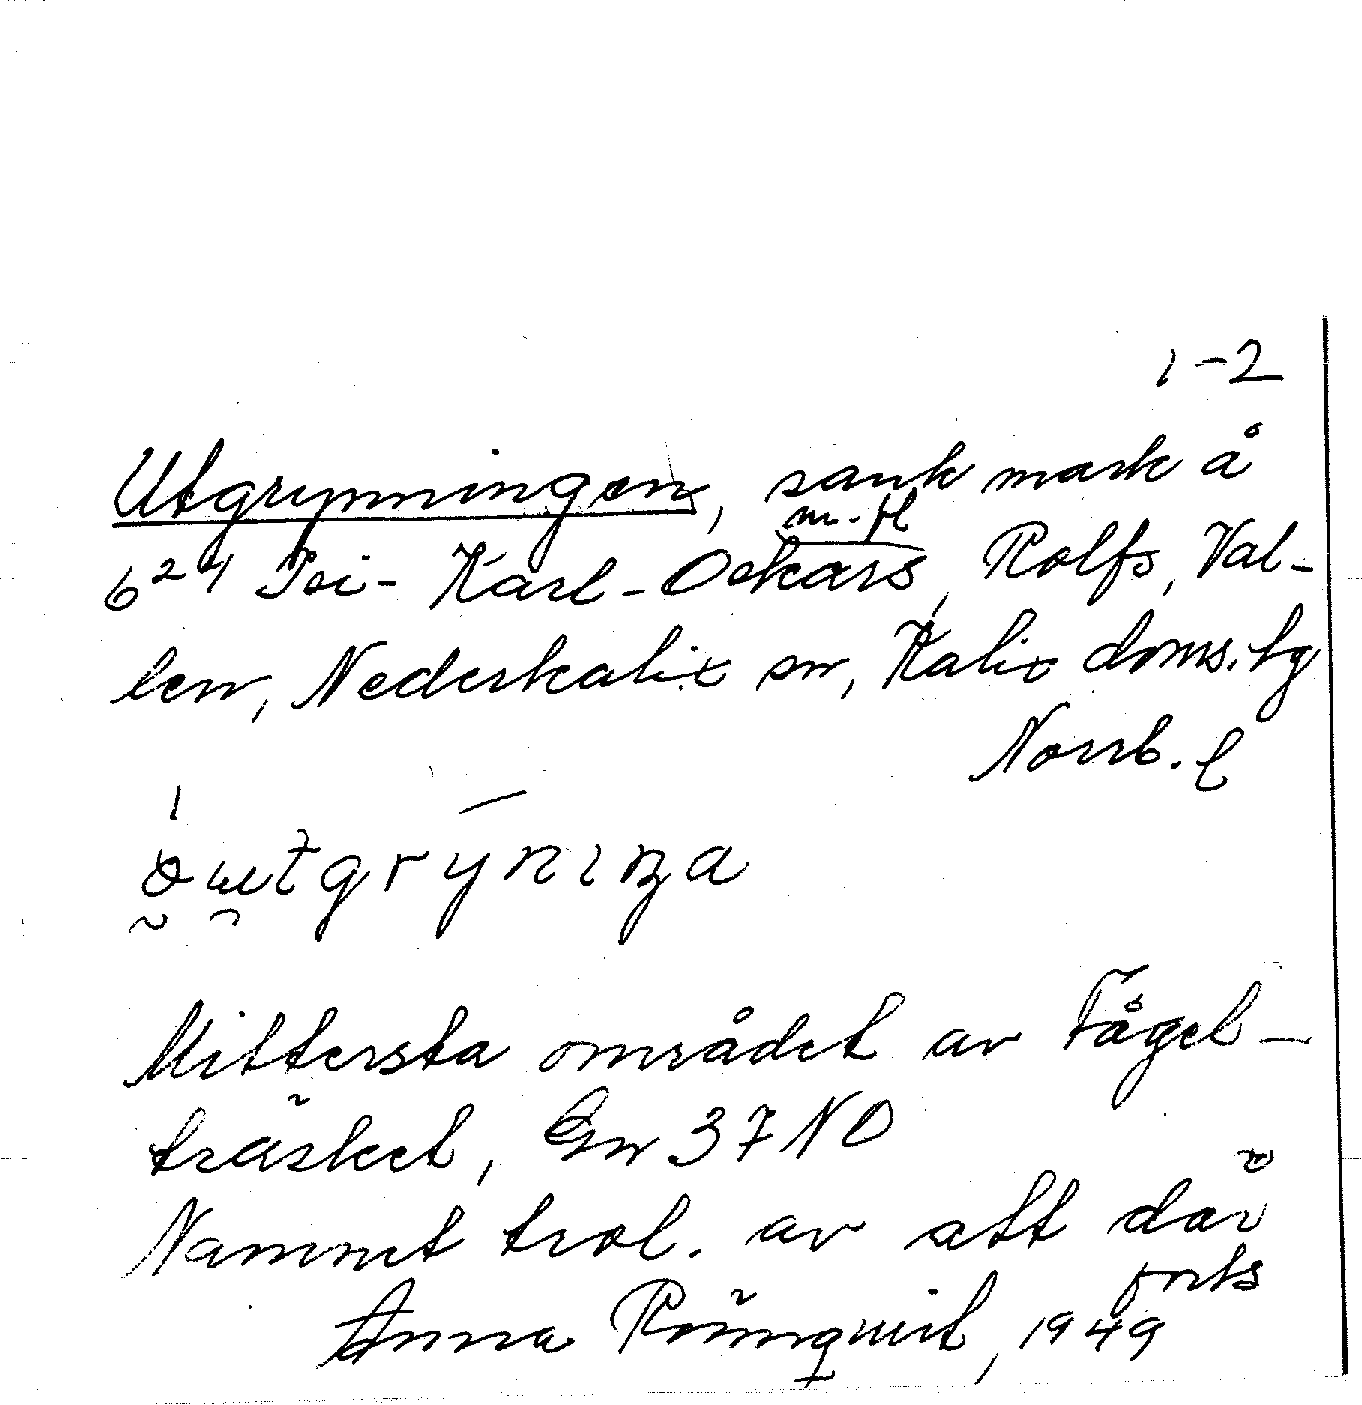 1-2
Utgrynningen, sank mark å
m. fl
6²⁴ Poi- Karl-Oskars, Rolfs, Val-
len, Nederkalix sn, Kalix doms. tg
Norrb. l
Mittersta området av Fågel-
träsket, Gn 37 NO
Namnet trol. av att där
forts
Anna Rönnquist, 1949